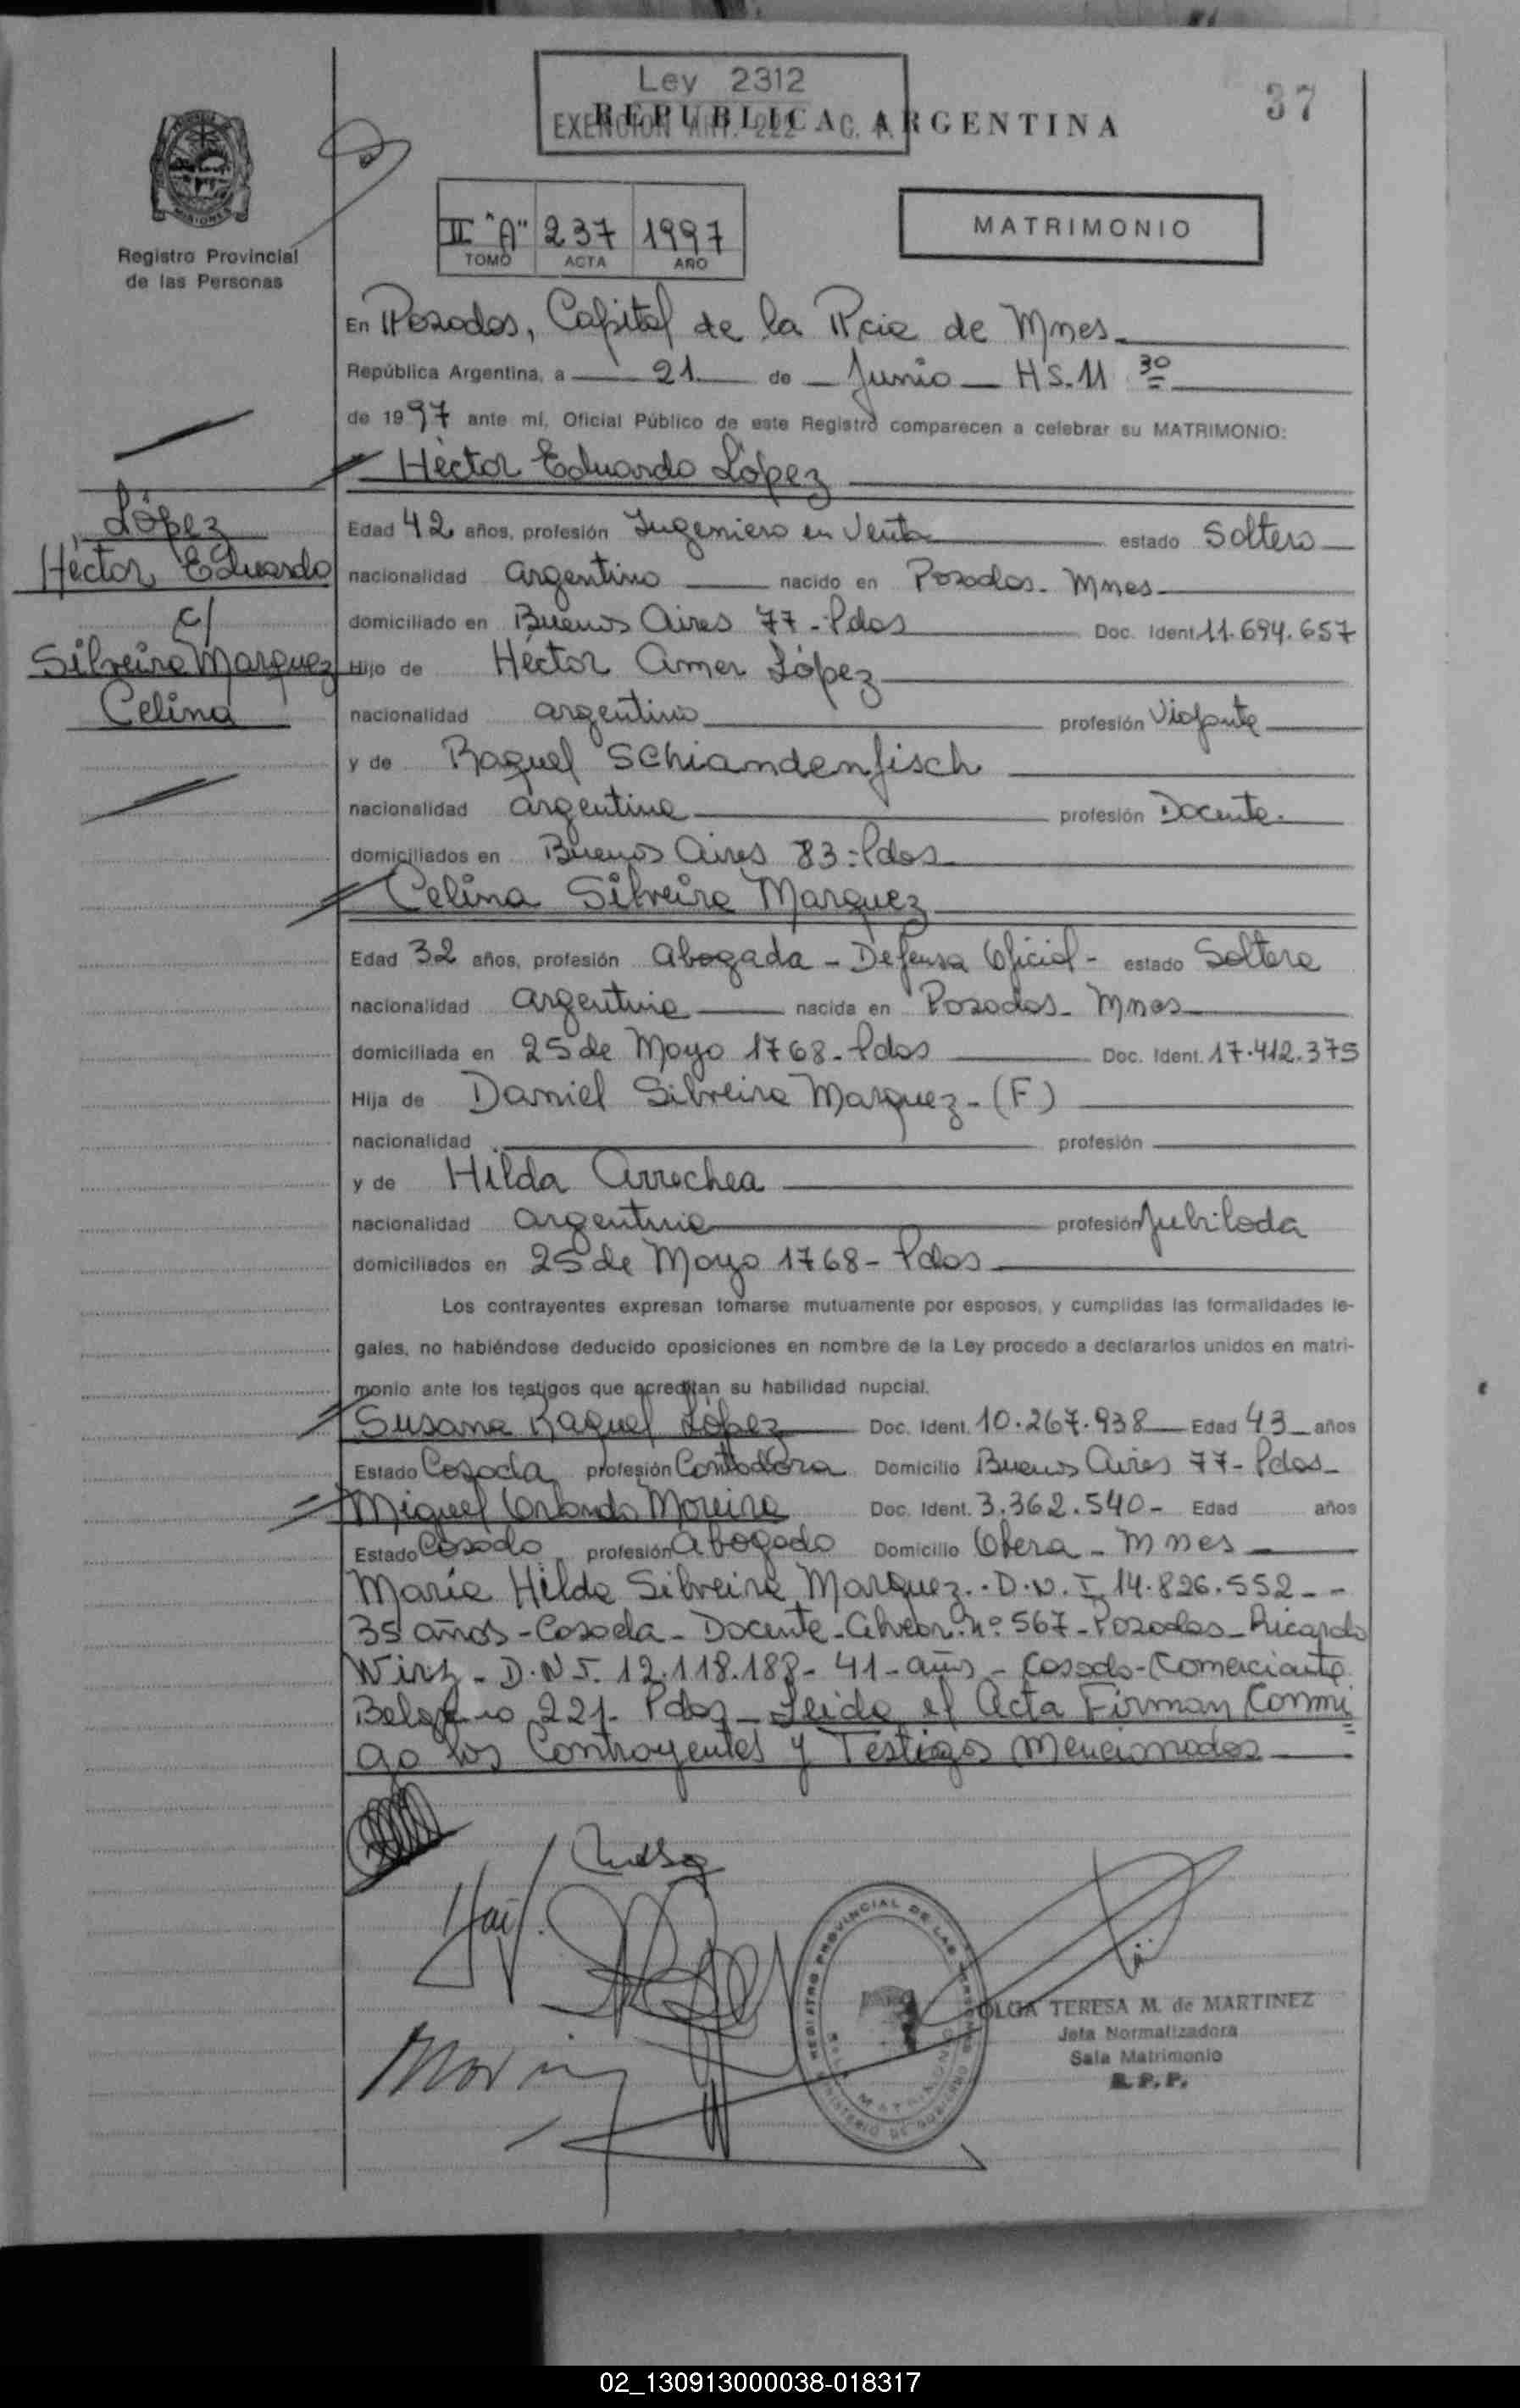 Ley 2312
REPUBLICA ARGENTINA
EXENCION ART. 222 C. F.
37
MISIONES
Registro Provincial
de las Personas
II "A" 237 1997
TOMO ACTA AÑO
MATRIMONIO
En Posadas, Capital de la Pcia de Mnes
República Argentina, a 21 de Junio HS. 11 30
de 1997 ante mí, Oficial Público de este Registro comparecen a celebrar su MATRIMONIO:
Héctor Eduardo López
López
Héctor Eduardo
c/
Silveira Marquez
Celina
Edad 42 años, profesión Ingeniero en Venta estado Soltero
nacionalidad argentino nacido en Posadas - Mnes
domiciliado en Buenos Aires 77 - Pdas Doc. Ident. 11.694.657
Hijo de Héctor Amer López
nacionalidad argentino profesión Viajante
y de Raquel Schiandenfisch
nacionalidad argentina profesión Docente
domiciliados en Buenos Aires 83 - Pdas
Celina Silveira Marquez
Edad 32 años, profesión Abogada - Defensa Oficial - estado Soltera
nacionalidad argentina nacida en Posadas - Mnes
domiciliada en 25 de Mayo 1768 - Pdas Doc. Ident. 17.412.375
Hija de Daniel Silveira Marquez - (F)
nacionalidad profesión
y de Hilda Arrechea
nacionalidad argentina profesión Jubilada
domiciliados en 25 de Mayo 1768 - Pdas
Los contrayentes expresan tomarse mutuamente por esposos, y cumplidas las formalidades le-
gales, no habiéndose deducido oposiciones en nombre de la Ley procedo a declararlos unidos en matri-
monio ante los testigos que acreditan su habilidad nupcial.
Susana Raquel López Doc. Ident. 10.267.938 Edad 43 años
Estado Casada profesión Contadora Domicilio Buenos Aires 77 - Pdas -
Miguel Orlando Moreira Doc. Ident. 3.362.540 - Edad años
Estado Casado profesión Abogado Domicilio Obera - Mnes
María Hilda Silveira Marquez - D.N.I. 14.826.552 - -
35 años - Casada - Docente - Alvear nº 567 - Posadas - Ricardo
Wirz - D.N.I. 12.118.188 - 41 - años - Casado - Comerciante
Belgrano 221 - Pdas - Leida el Acta Firman Conmi
go los Contrayentes y Testigos Mencionados
REGISTRO PROVINCIAL DE LAS PERSONAS
MINISTERIO DE GOBIERNO
MATRIMONIO
OLGA TERESA M. de MARTINEZ
Jefa Normalizadora
Sala Matrimonio
R. P. P.
02_130913000038-018317